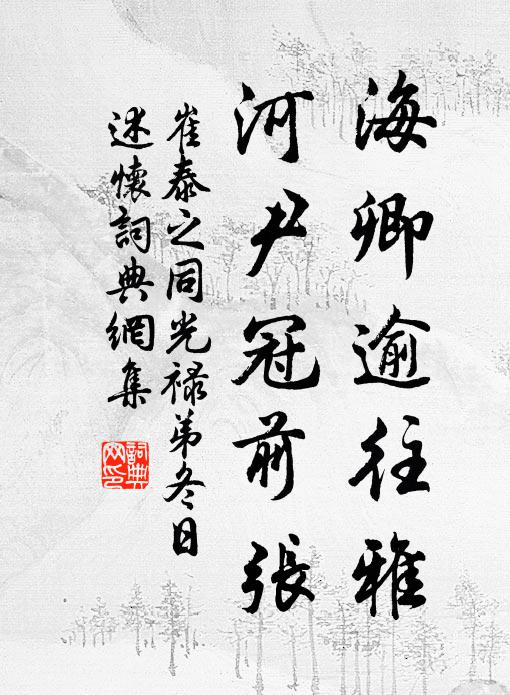 海卿逾往雅
河尹冠前張
崔泰之同光禄弟冬日
述懷詞典網集
詞典網印